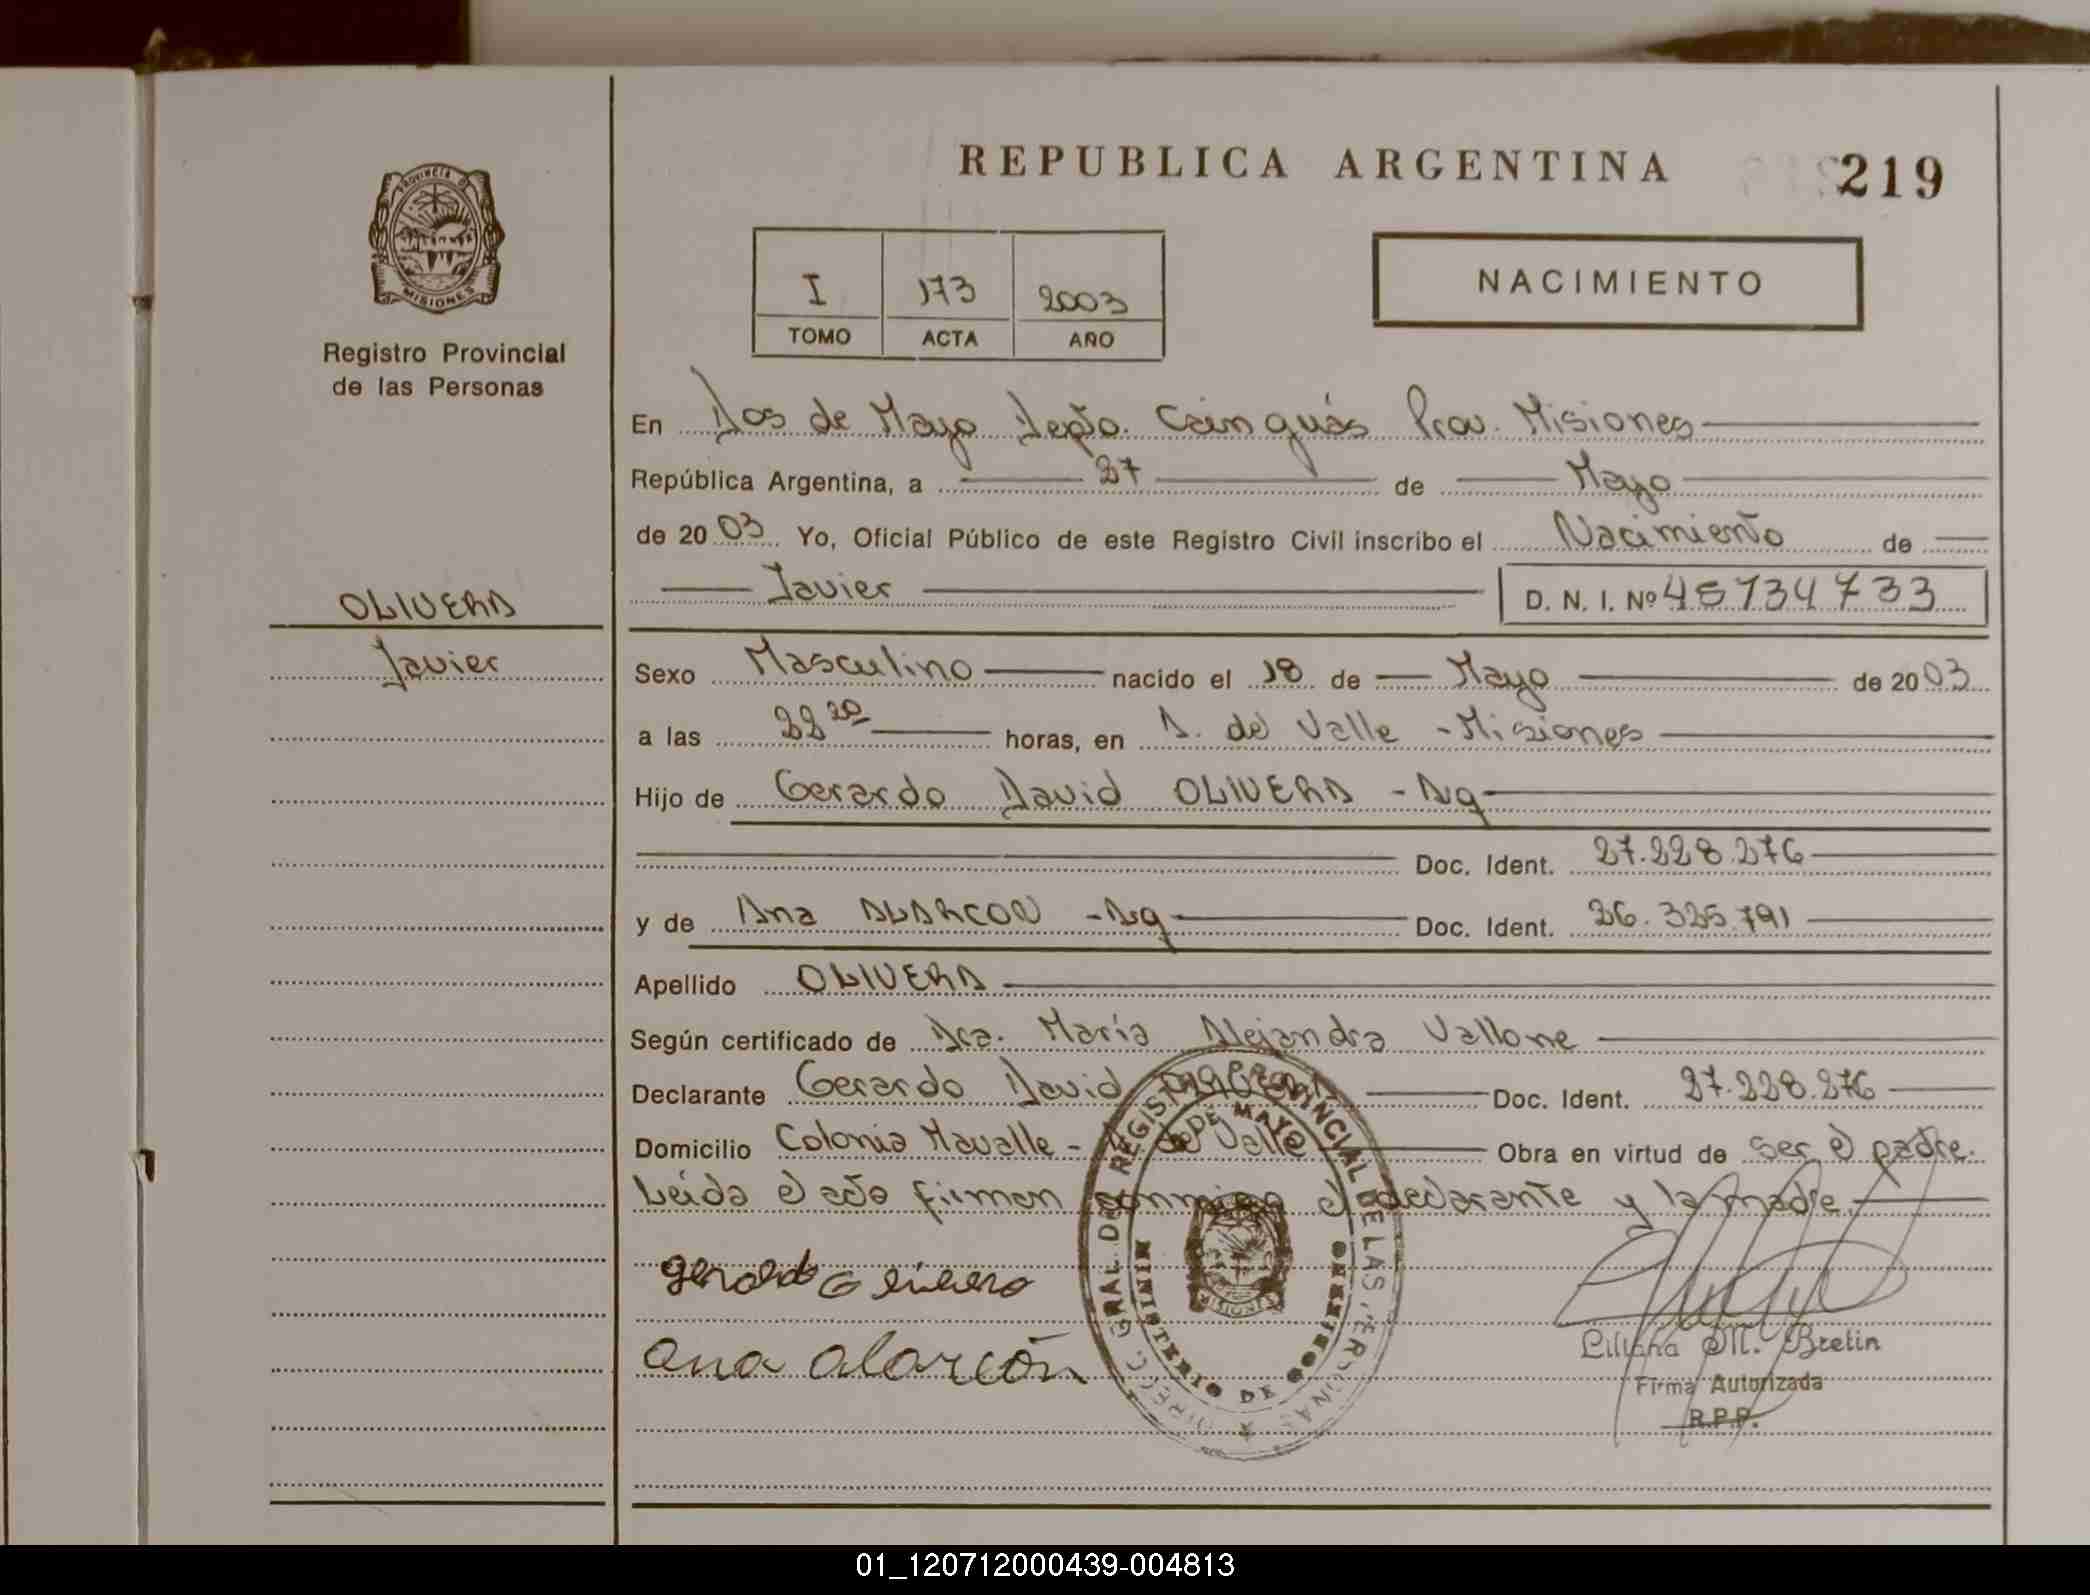 REPUBLICA ARGENTINA
219
PROVINCIA DE
MISIONES
Registro Provincial
de las Personas
I 173 2003
TOMO ACTA AÑO
NACIMIENTO
En Dos de Mayo Depto. Cainguás Prov. Misiones
República Argentina, a 27 de Mayo
de 2003 Yo, Oficial Público de este Registro Civil inscribo el Nacimiento de
Javier D. N. I. Nº 45734733
OLIVERA
Javier
Sexo Masculino nacido el 18 de Mayo de 2003
a las 22 20 horas, en A. del Valle - Misiones
Hijo de Gerardo David OLIVERA - Arg
Doc. Ident. 27.228.276
y de Ana ALARCON - Arg Doc. Ident. 26.325.791
Apellido OLIVERA
Según certificado de Dra. María Alejandra Vallone
Declarante Gerardo David OLIVERA Doc. Ident. 27.228.276
Domicilio Colonia Mavalle - A. del Valle Obra en virtud de ser el padre.
Leída el acta firman conmigo el declarante y la madre.
DIRECC. GRAL. DEL REGISTRO PROVINCIAL DE LAS PERSONAS
DE MAYO
MINISTERIO DE GOBIERNO
MISIONES
Ana Alarcón
Liliana M. Bretin
Firma Autorizada
R.P.P.
01_120712000439-004813